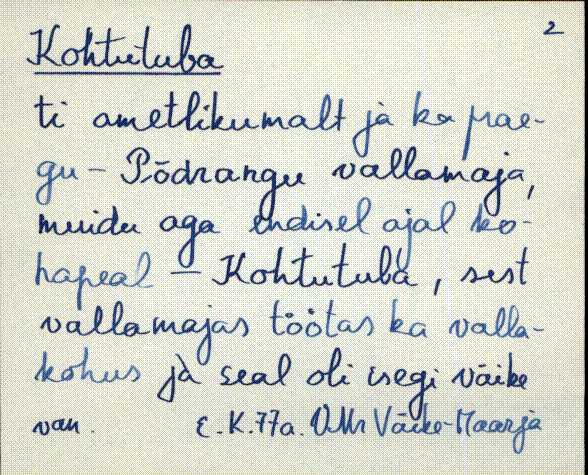 2
Kohtutuba
ti ametlikumalt ja ka prae-
gu - Põdrangu vallamaja,
muidu aga endisel ajal ko-
hapeal - Kohtutuba, sest
vallamajas töötas ka valla-
kohus ja seal oli isegi väike
van. E.K.77a. Väike-Maarja